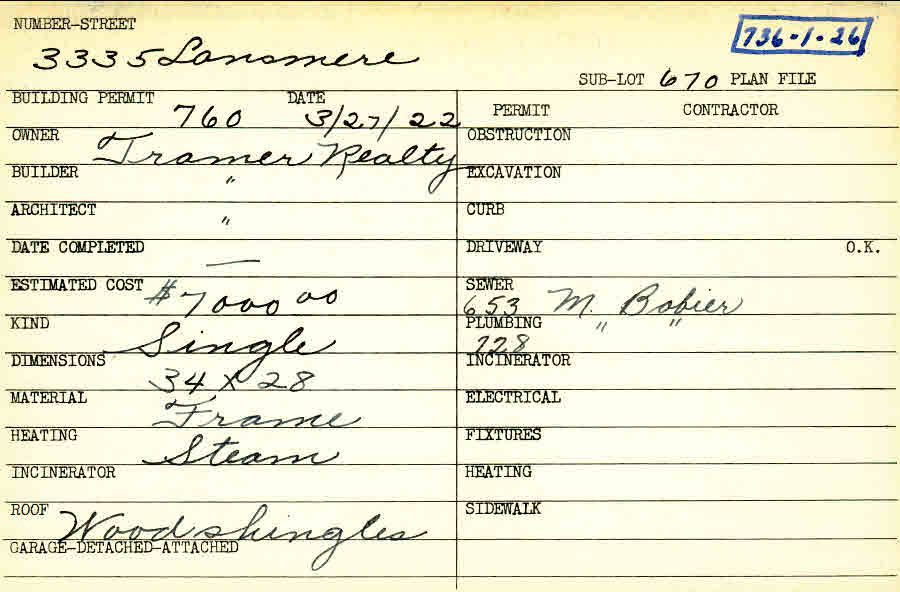 NUMBER-STREET
736-1-26
3335 Lansmere
SUB-LOT 670 PLAN FILE
BUILDING PERMIT 760 DATE 3/27/22
PERMIT CONTRACTOR
OWNER Tramer Realty
OBSTRUCTION
BUILDER "
EXCAVATION
ARCHITECT "
CURB
DATE COMPLETED —
DRIVEWAY O.K.
ESTIMATED COST #7000 00
SEWER 653 M. Bobier
KIND Single
PLUMBING 728 " "
DIMENSIONS 34 x 28
INCINERATOR
MATERIAL Frame
ELECTRICAL
HEATING Steam
FIXTURES
INCINERATOR
HEATING
ROOF Wood shingles
SIDEWALK
GARAGE-DETACHED-ATTACHED